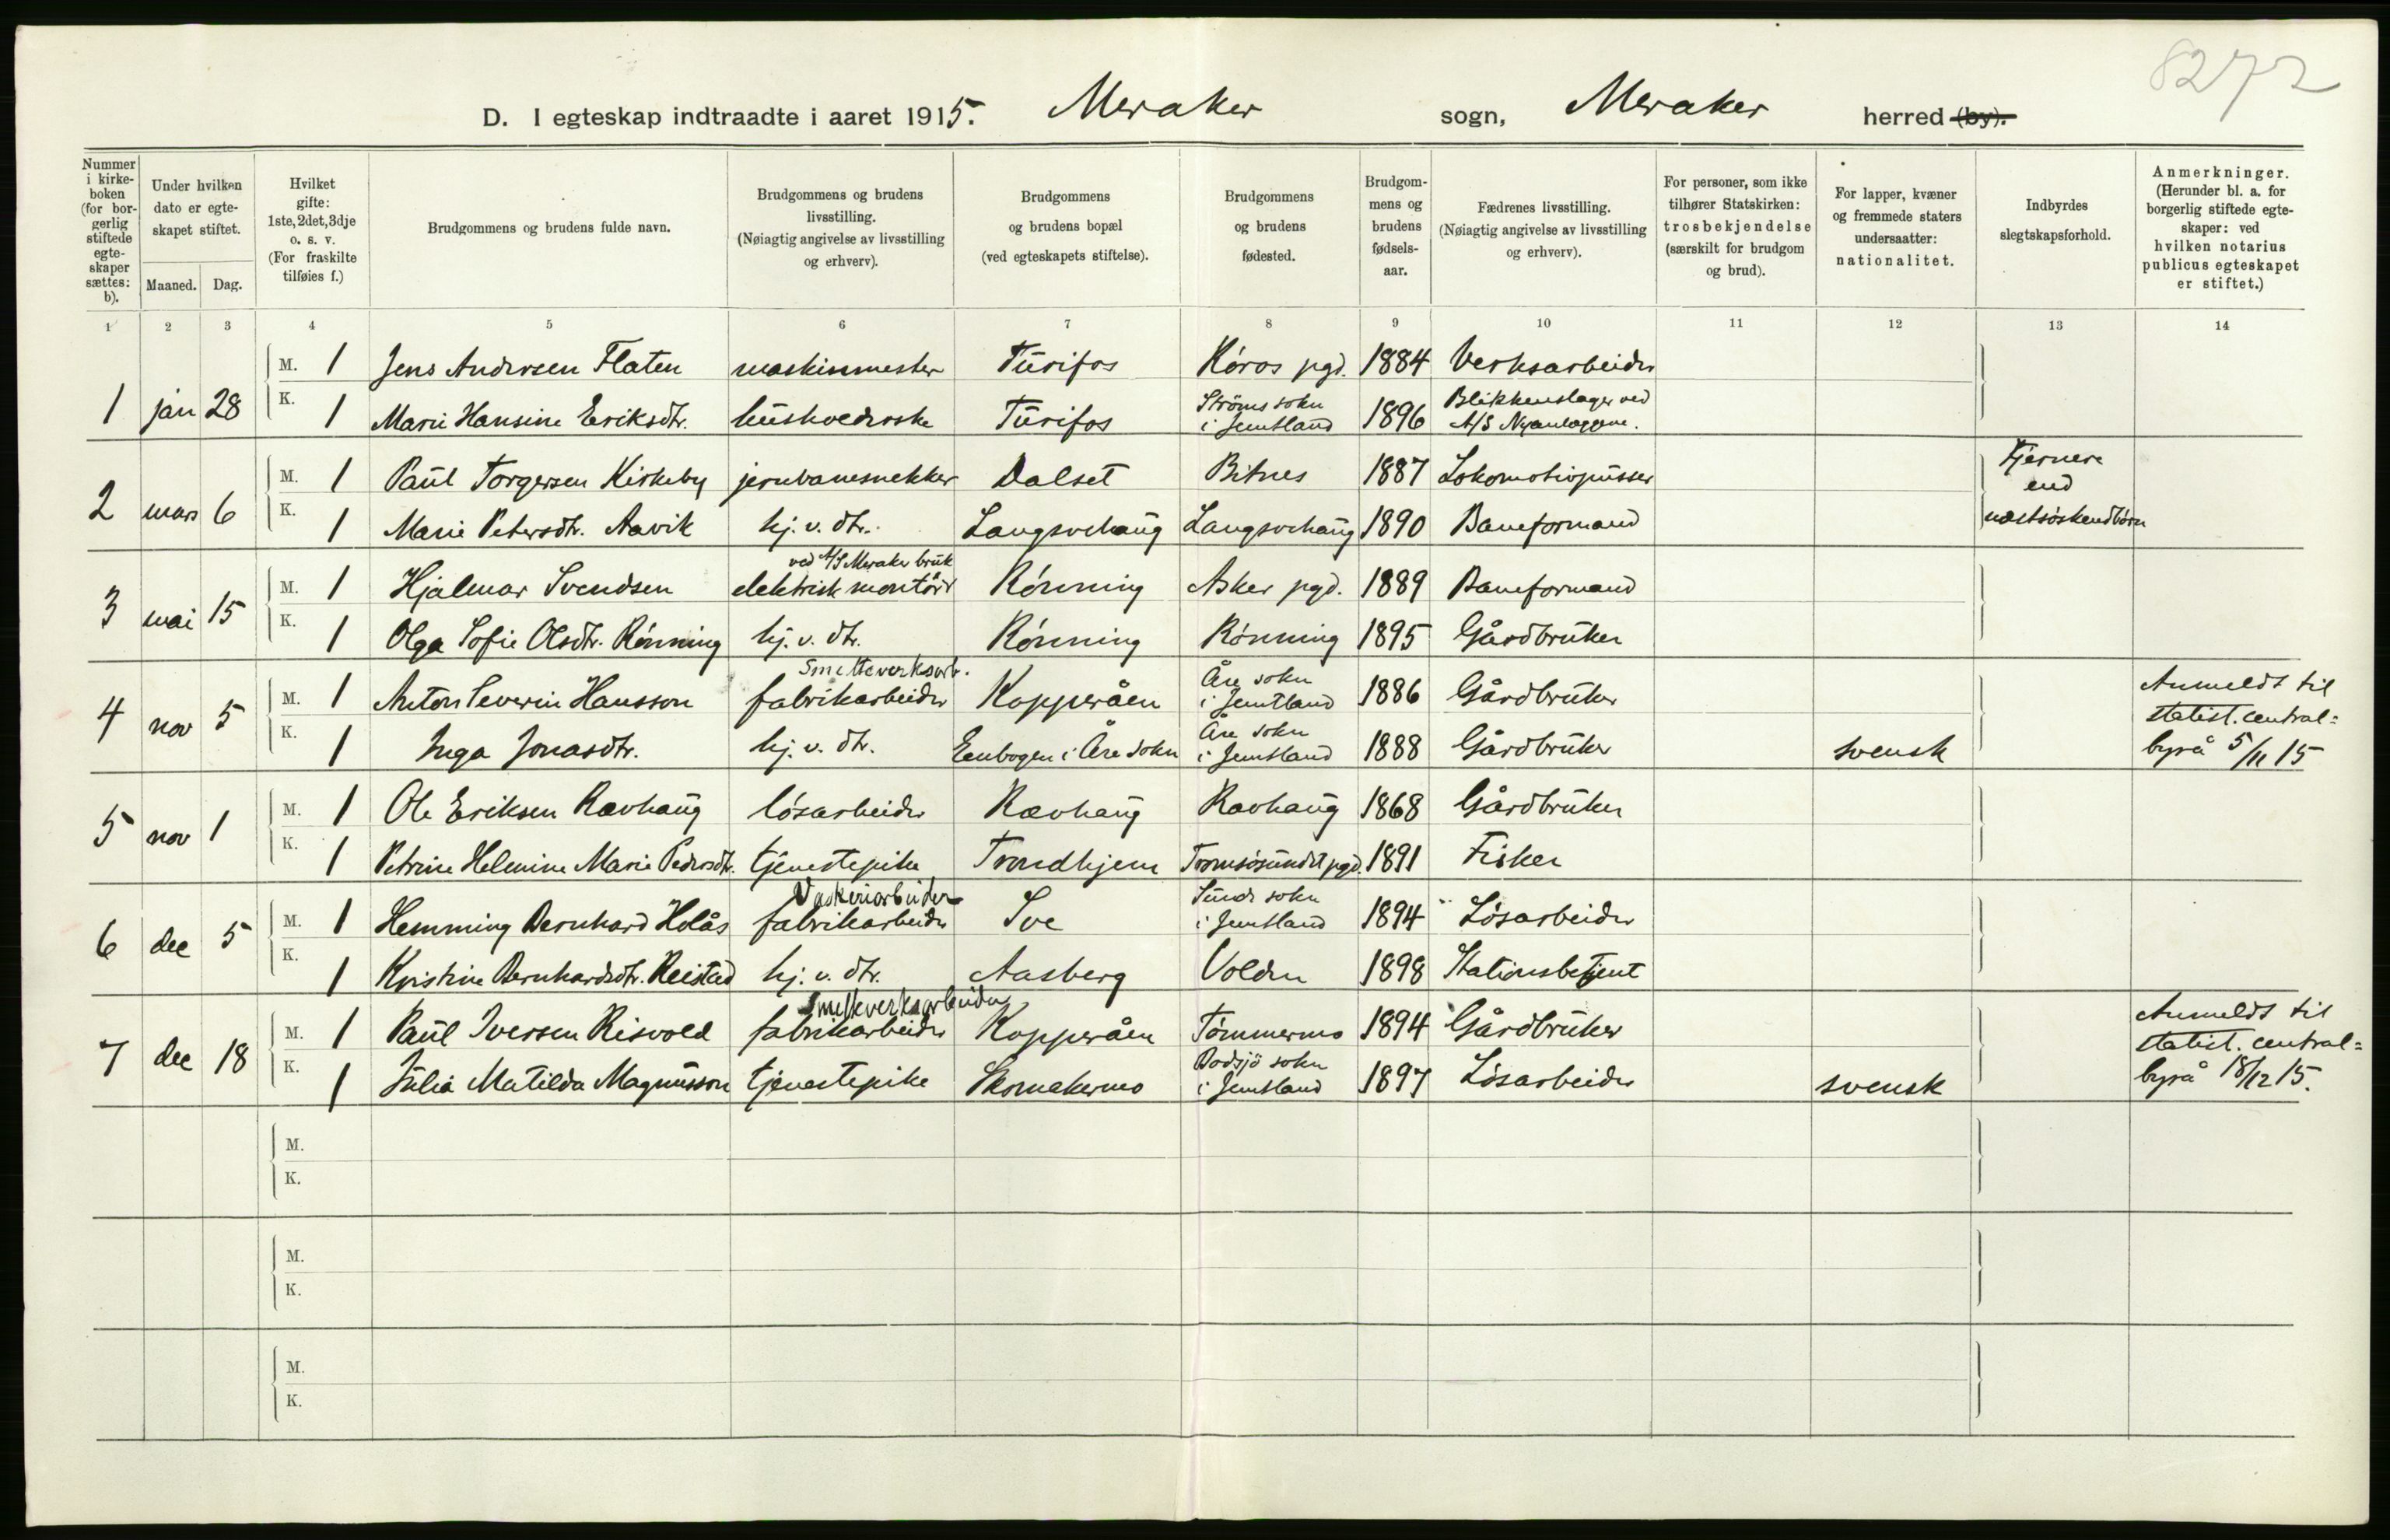 8272
D. I egteskap indtraadte i aaret 1915. Meraker sogn, Meraker herred (by).
Nummer i kirke-boken (for bor-gerlig stiftede egte-skaper sættes: b).
Under hvilken dato er egte-skapet stiftet.
Maaned. Dag.
Hvilket gifte: 1ste, 2det, 3dje o. s. v. (For fraskilte tilføies f.)
Brudgommens og brudens fulde navn.
Brudgommens og brudens livsstilling. (Nøiagtig angivelse av livsstilling og erhverv).
Brudgommens og brudens bopæl (ved egteskapets stiftelse).
Brudgommens og brudens fødested.
Brudgom-mens og brudens fødsels-aar.
Fædrenes livsstilling. (Nøiagtig angivelse av livsstilling og erhverv).
For personer, som ikke tilhører Statskirken: trosbekjendelse (særskilt for brudgom og brud).
For lapper, kvæner og fremmede staters undersaatter: nationalitet.
Indbyrdes slegtskapsforhold.
Anmerkninger. (Herunder bl. a. for borgerlig stiftede egte-skaper: ved hvilken notarius publicus egteskapet er stiftet.)
1 2 3 4 5 6 7 8 9 10 11 12 13 14
1 jan 28 M. 1 Jens Andersen Flaten maskinmester Turifos Røros pgd. 1884 Verksarbeider
K. 1 Marie Hansine Eriksdtr. husholderske Turifos Ströms sokn i Jemtland 1896 Blikkenslager ved A/S Nyanlæggene.
2 mars 6 M. 1 Paul Torgersen Kirkeby jernbanesnekker Dalset Bitnes 1887 Lokomotivpusser Fjernere end næstsøskendbørn
K. 1 Marie Petersdtr. Aavik hj. v. dtr. Langsvehaug Langsvehaug 1890 Baneformand
3 mai 15 M. 1 Hjalmar Svendsen elektrisk montör ved A/S Meraker bruk Rønning Asker pgd. 1889 Baneformand
K. 1 Olga Sofie Olsdtr. Rønning hj. v. dtr. Rønning Rønning 1895 Gårdbruker
4 nov 5 M. 1 Anton Severin Hansson Smelteverksarb. fabrikarbeider Kopperåen Åre sokn i Jemtland 1886 Gårdbruker Anmeldt til statist. central=
K. 1 Inga Jonasdtr. hj. v. dtr. Enbogen i Åre sokn Åre sokn i Jemtland 1888 Gårdbruker svensk byrå 5/11 15
5 nov 1 M. 1 Ole Eriksen Rævhaug løsarbeider Rævhaug Rævhaug 1868 Gårdbruker
K. 1 Petrine Helmine Marie Pedersdtr. tjenestepike Trondhjem Tromsøsundet pgd. 1891 Fisker
6 dec 5 M. 1 Hemming Bernhard Holås Vaskeriarbeider fabrikarbeider Sve Sunds sokn i Jemtland 1894 Løsarbeider
K. 1 Kristine Bernhardsdtr. Reistad hj. v. dtr. Aasberg Volden 1898 Stationsbetjent
7 dec 18 M. 1 Paul Iversen Risvold Smelteverksarbeider fabrikarbeider Kopperåen Tömmermo 1894 Gårdbruker Anmeldt til statist. central=
K. 1 Julia Matilda Magnusson tjenestepike Skomakermo Bodsjö sokn i Jemtland 1897 Løsarbeider svensk byrå 18/12 15.
M.
K.
M.
K.
M.
K.